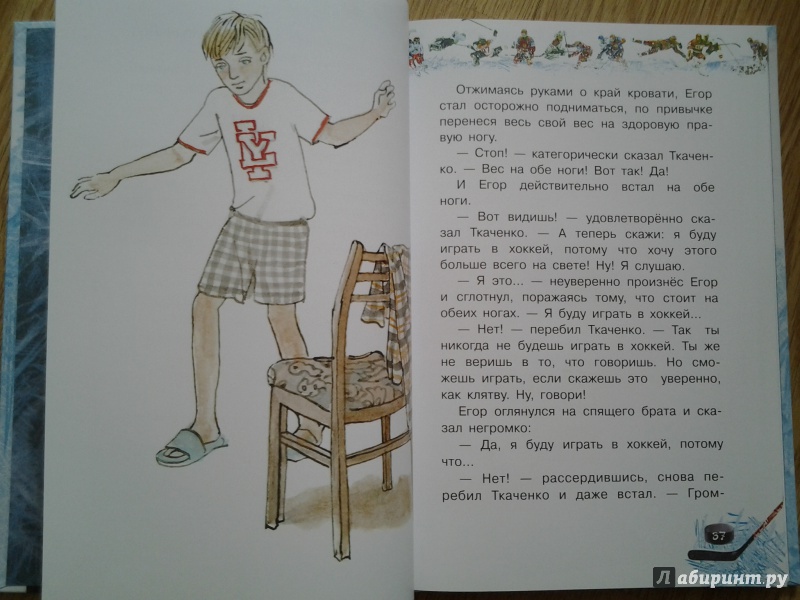 Отжимаясь руками о край кровати, Егор
стал осторожно подниматься, по привычке
перенеся весь свой вес на здоровую пра-
вую ногу.
— Стоп! — категорически сказал Ткачен-
ко. — Вес на обе ноги! Вот так! Да!
И Егор действительно встал на обе
ноги.
— Вот видишь! — удовлетворённо ска-
зал Ткаченко. — А теперь скажи: я буду
играть в хоккей, потому что хочу этого
больше всего на свете! Ну! Я слушаю.
— Я это... — неуверенно произнёс Егор
и сглотнул, поражаясь тому, что стоит на
обеих ногах. — Я буду играть в хоккей...
— Нет! — перебил Ткаченко. — Так ты
никогда не будешь играть в хоккей. Ты же
не веришь в то, что говоришь. Но смо-
жешь играть, если скажешь это уверенно,
как клятву. Ну, говори!
Егор оглянулся на спящего брата и ска-
зал негромко:
— Да, я буду играть в хоккей, потому
что...
— Нет! — рассердившись, снова пе-
ребил Ткаченко и даже встал. — Гром-
67
Лабиринт.ру